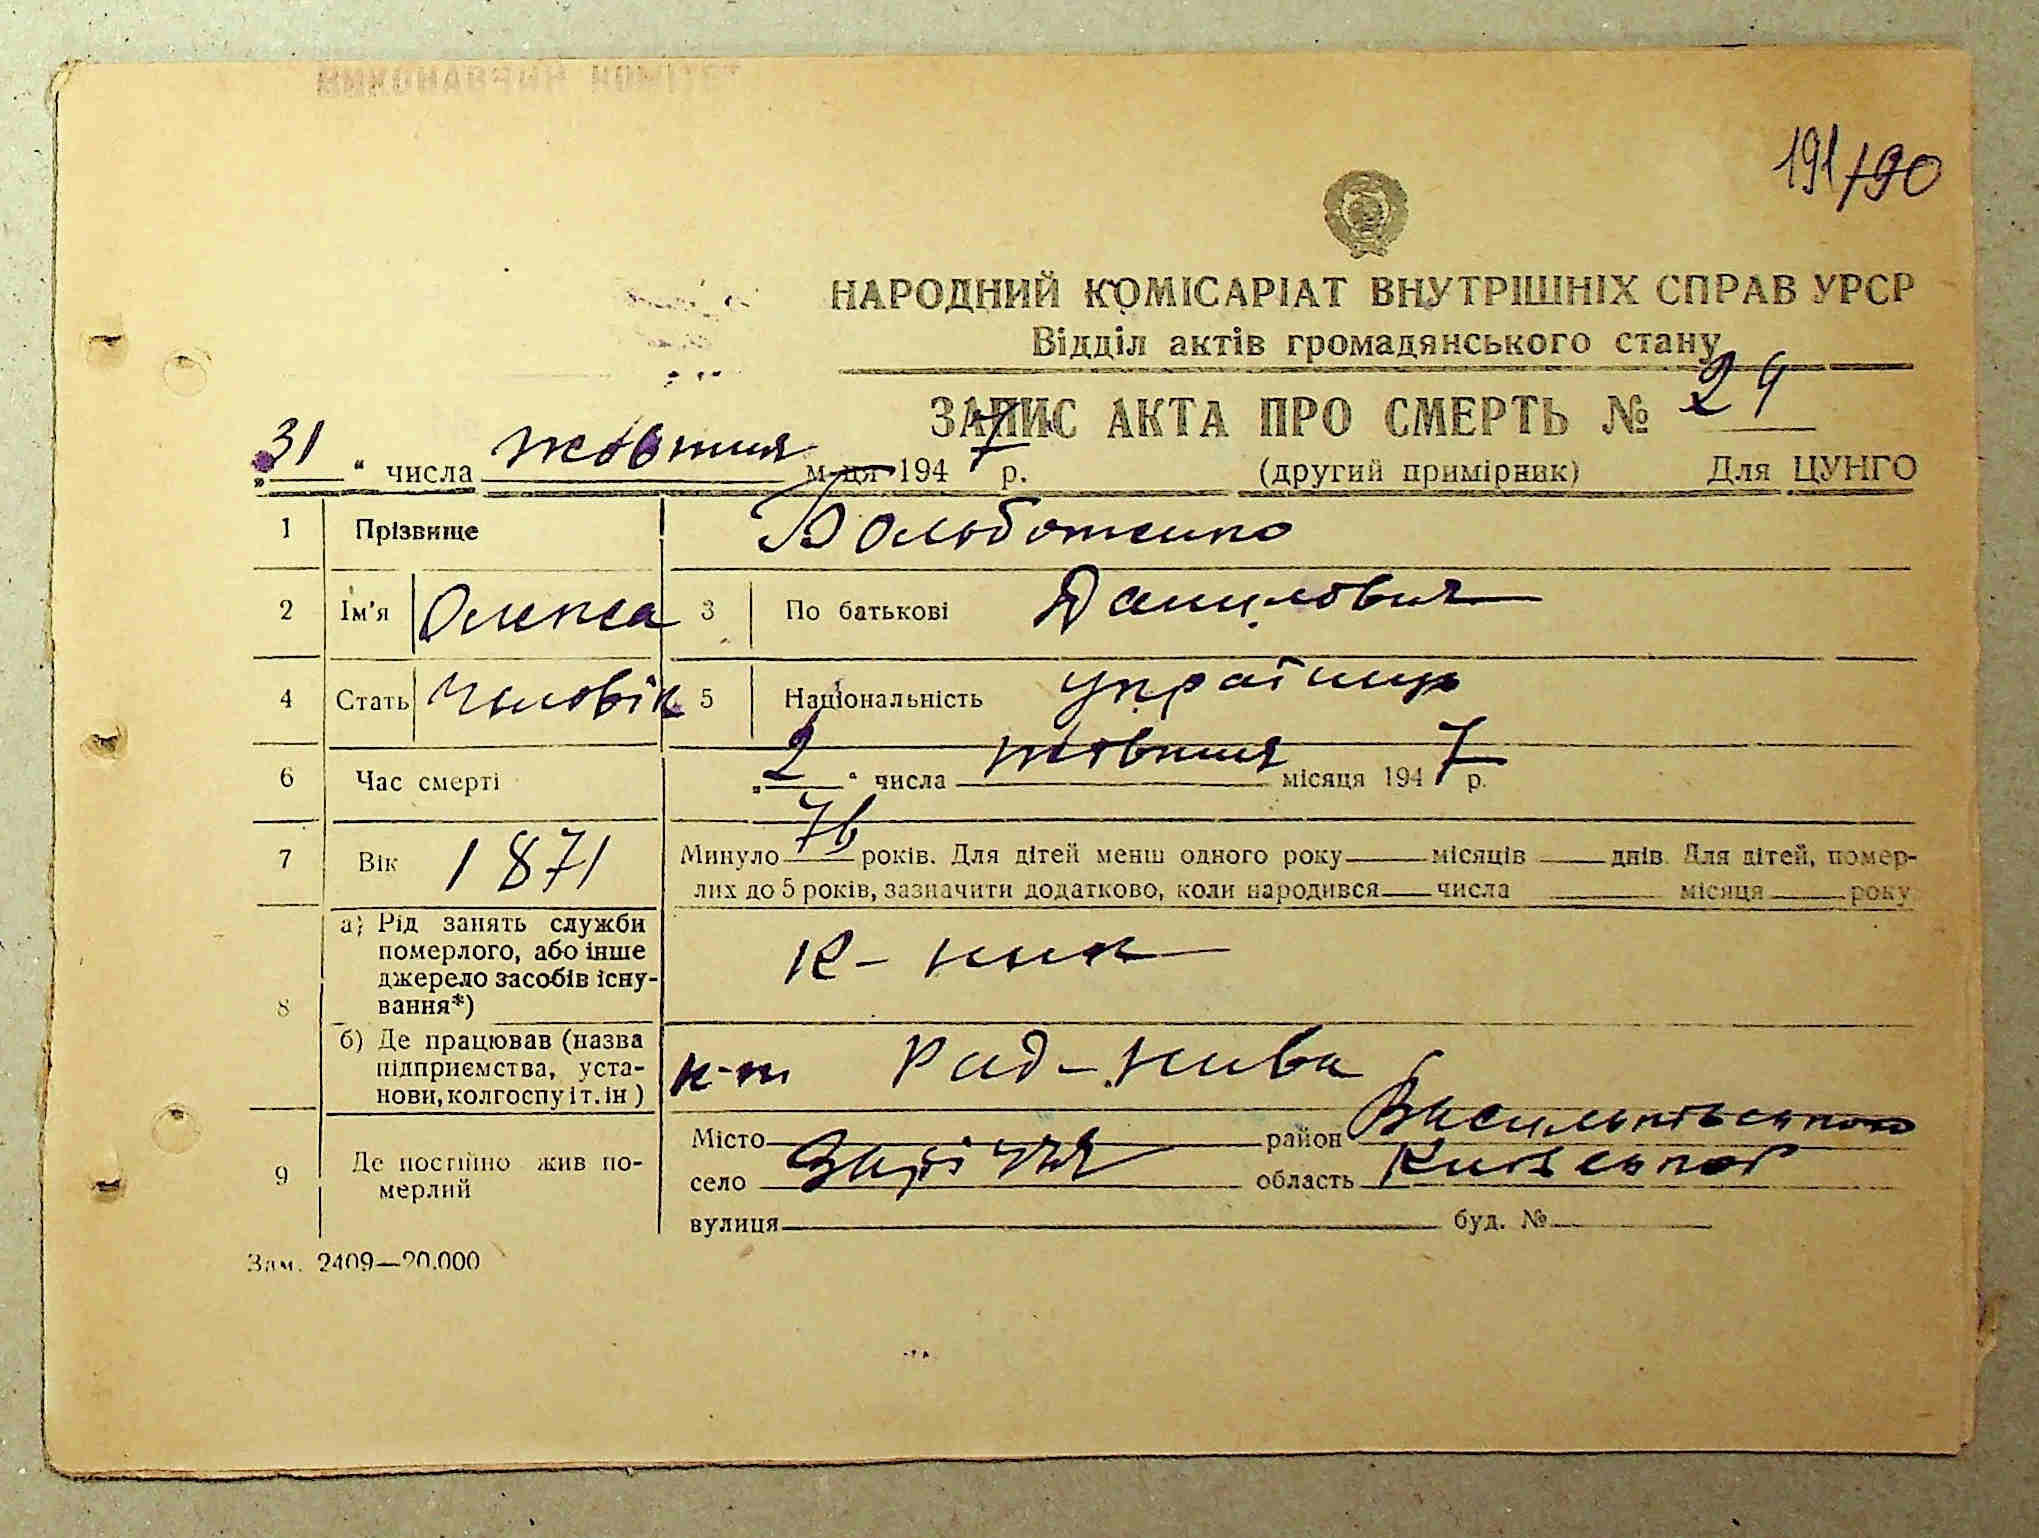 191/190
НАРОДНИЙ КОМІСАРІАТ ВНУТРІШНІХ СПРАВ УРСР
Відділ актів громадянського стану
ЗАПИС АКТА ПРО СМЕРТЬ № 24
„31“ числа жовтня м-ця 1947 р. (другий примірник) Для ЦУНГО
1 Прізвище
2 Ім'я Олекса 3 По батькові Данилович
4 Стать Чоловік 5 Національність українц
6 Час смерті „2“ числа жовтня місяця 1947 р.
7 Вік 1871 Минуло 76 років. Для дітей менш одного року місяців днів. Для дітей, помер-
лих до 5 років, зазначити додатково, коли народився числа місяця року
8 а) Рід занять служби
померлого, або інше
джерело засобів існу-
вання*)
К-ник
б) Де працював (назва
підприємства, уста-
нови, колгоспу і т. ін)
к-т Рад-Нива
9 Де постійно жив по-
мерлий
Місто район Васильківського
село Заріччя область Київської
вулиця буд. №
Зам. 2409—20.000